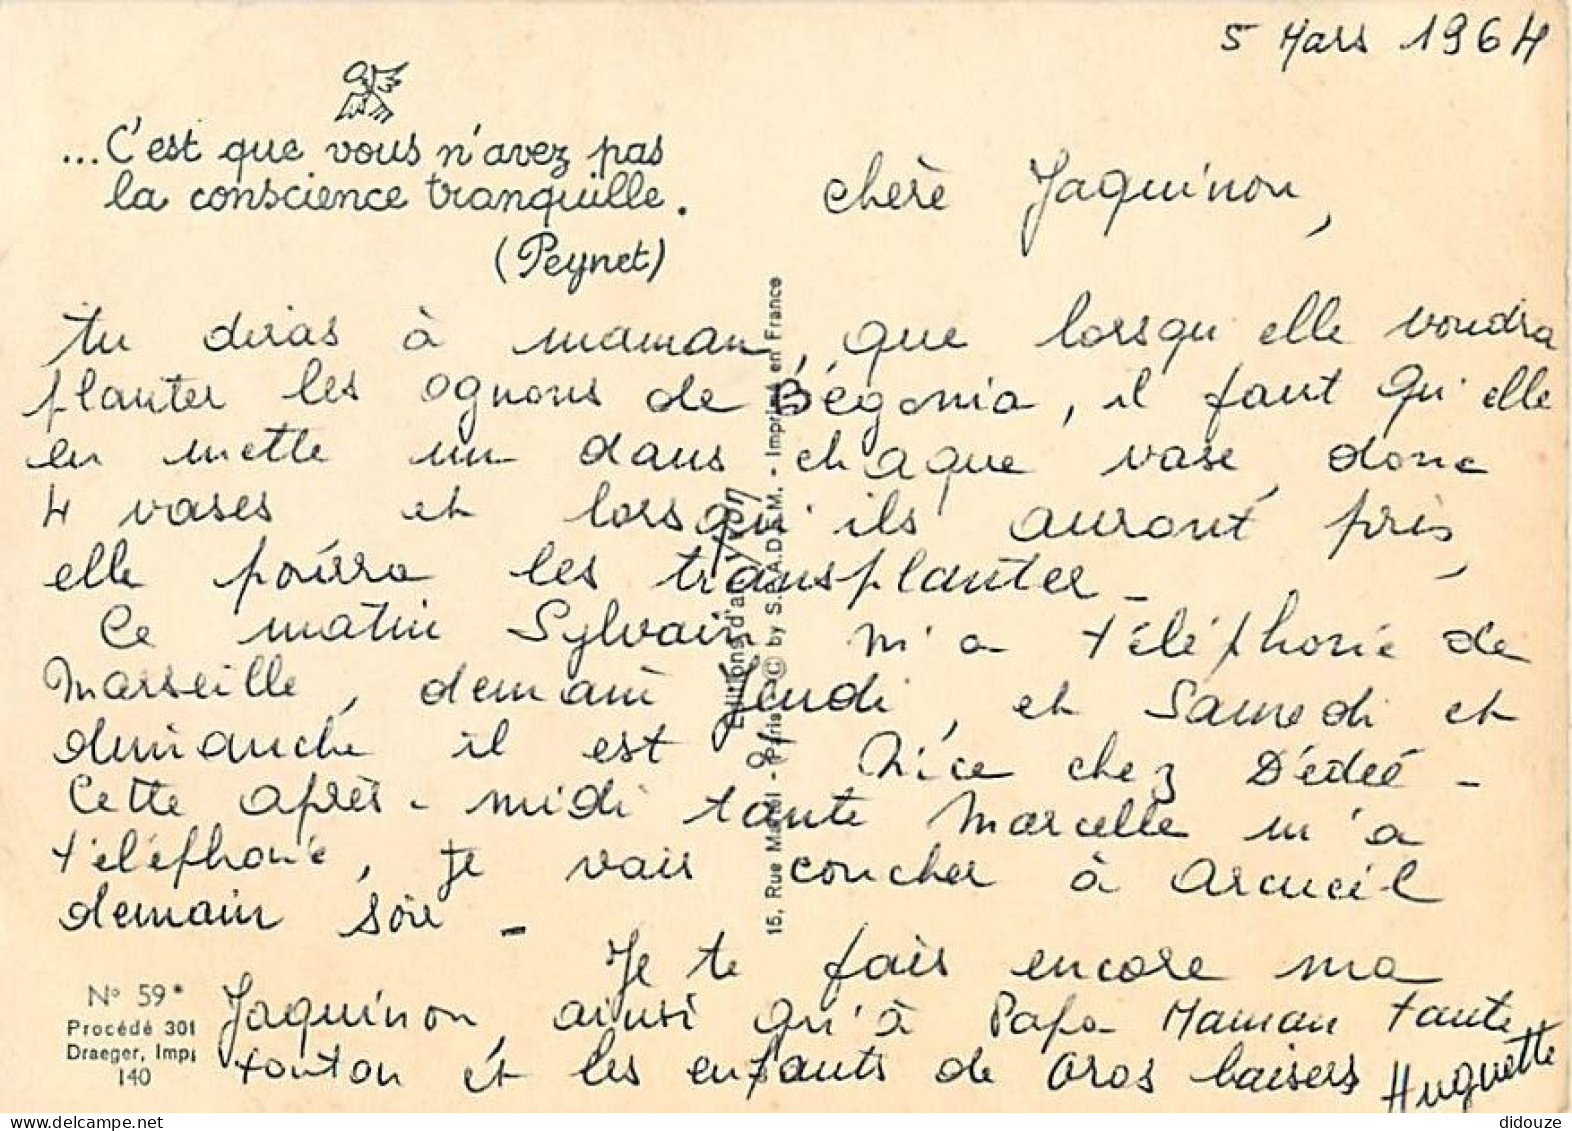 5 Mars 1964
...C'est que vous n'avez pas
la conscience tranquille.
(Peynet)
chérè Jaquinon,
tu diras à maman, que lorsqu'elle voudra
planter les ognons de Bégonia, il faut qu'elle
en mette un dans chaque vase, donc
4 vases et lorsqu'ils auront pris,
elle pourra les transplanter -
Ce matin Sylvain m'a téléphoné de
Marseille, demain Jeudi, et Samedi et
dimanche il est à Nice chez Dédée -
Cette après-midi tante Marcelle m'a
téléphoné, je vais coucher à Arcueil
demain soir -
Je te fais encore ma
Jaquinon, ainsi qu'à Papa Maman tante
tonton et les enfants de Gros baisers
Huguette
Editions d'art Yvon
15, Rue Martel - Paris - © by S.P.A.D.E.M. - Imprimé en France
N° 59*
Procédé 301
Draeger, Imp;
140
didouze